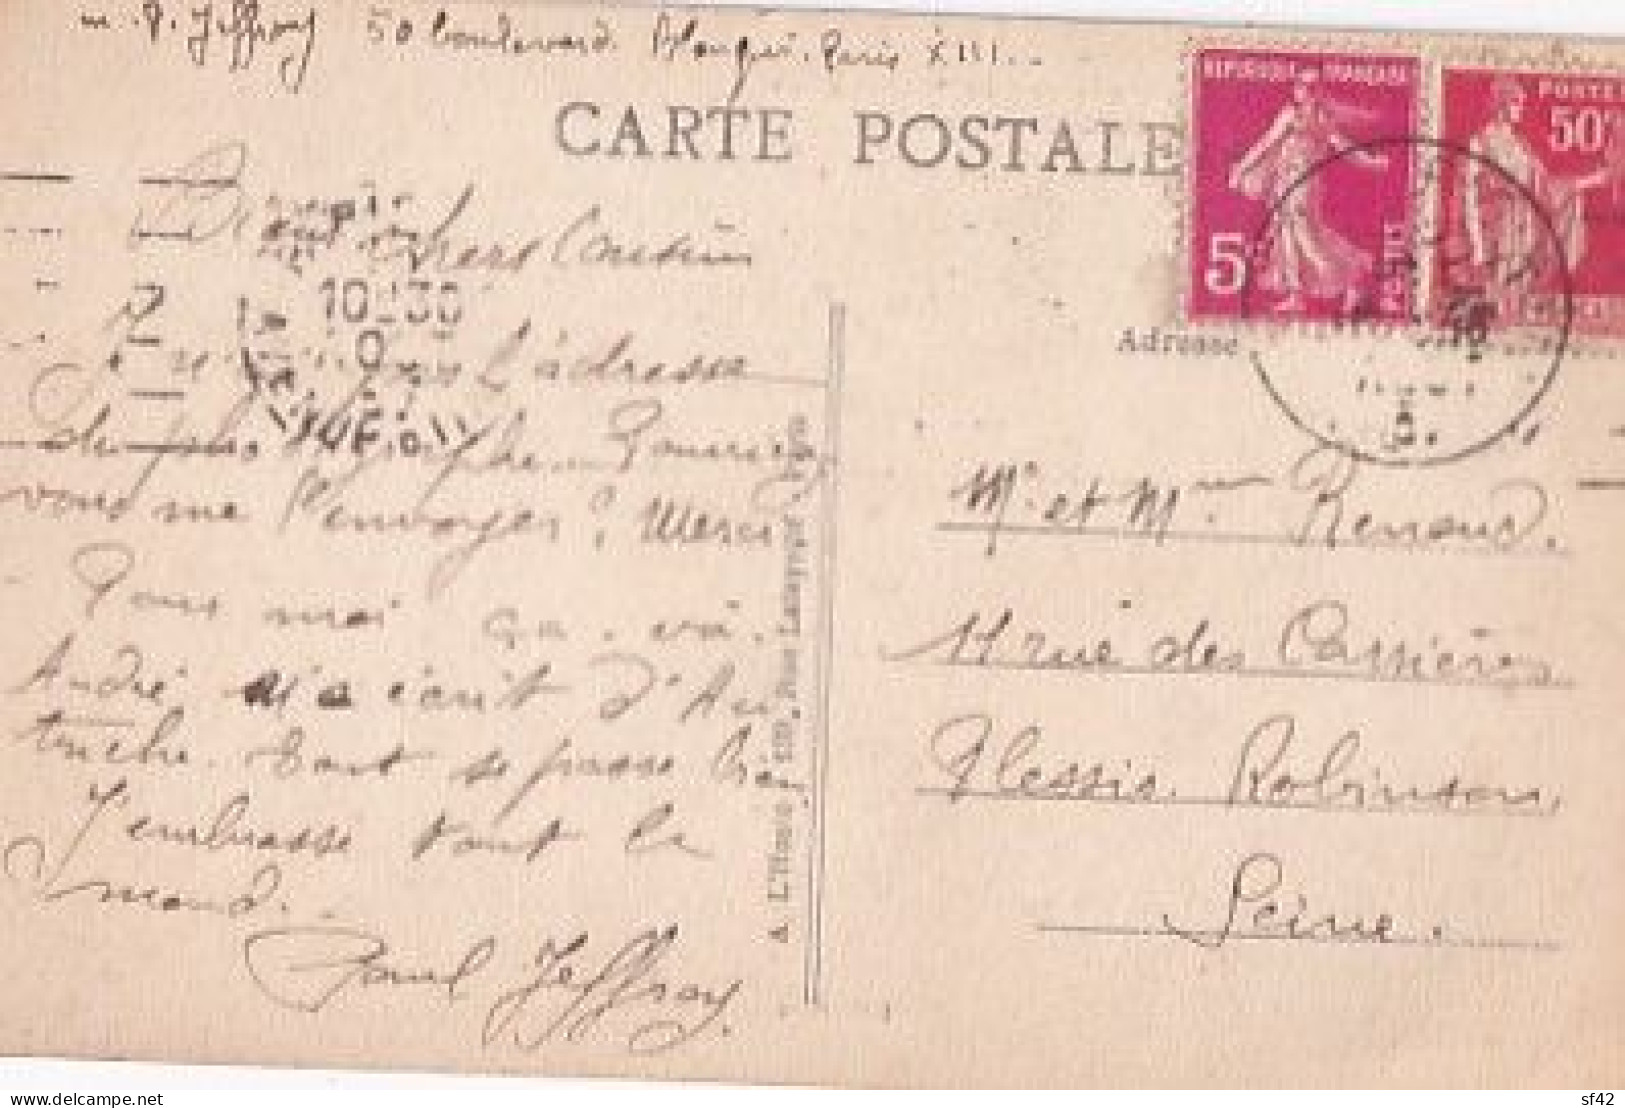 m. P. Jeffroy 50 boulevard Blanqui. Paris XIII...
CARTE POSTALE
REPUBLIQUE FRANÇAISE
5c
POSTES
POSTES
50c
Chers Cousins
10 30
l'adresse
du photographe. Pourriez
vous me l'envoyer? Merci
Pour moi ça va.
André m'a écrit d'Au
triche. Tout se passe bien
J'embrasse tout le
mond.
Paul Jeffroy.
A. L'Hoste 139, Rue Lafayette Paris
Adresse
Mr et Mme Renaud.
11 rue des Cassières
Plessis Robinson,
Seine.
delcampe.net
sf42